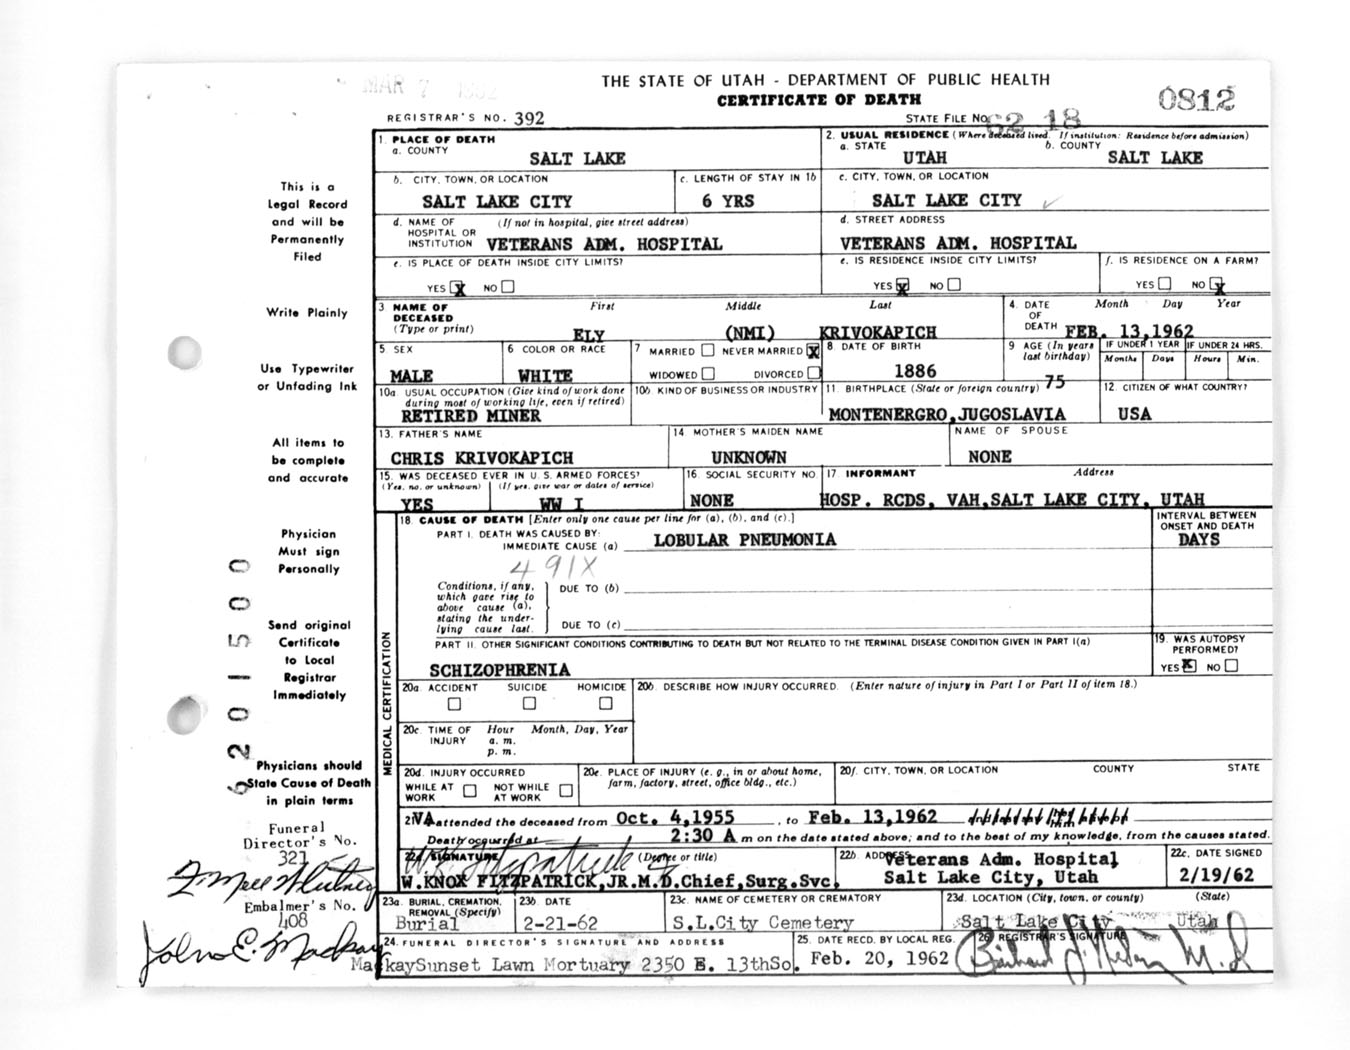 MAR 7 1962
THE STATE OF UTAH - DEPARTMENT OF PUBLIC HEALTH
CERTIFICATE OF DEATH
0812
REGISTRAR'S NO. 392
STATE FILE NO. 62 18
This is a
Legal Record
and will be
Permanently
Filed
Write Plainly
Use Typewriter
or Unfading Ink
All items to
be complete
and accurate
Physician
Must sign
Personally
Send original
Certificate
to Local
Registrar
Immediately
Physicians should
State Cause of Death
in plain terms
Funeral
Director's No.
321
Embalmer's No.
408
John E. Mackay
1. PLACE OF DEATH
a. COUNTY
SALT LAKE
2. USUAL RESIDENCE (Where deceased lived. If institution: Residence before admission)
a. STATE
b. COUNTY
UTAH
SALT LAKE
b. CITY, TOWN, OR LOCATION
SALT LAKE CITY
c. LENGTH OF STAY IN 1b
6 YRS
c. CITY, TOWN, OR LOCATION
SALT LAKE CITY
d. NAME OF (If not in hospital, give street address)
HOSPITAL OR
INSTITUTION VETERANS ADM. HOSPITAL
d. STREET ADDRESS
VETERANS ADM. HOSPITAL
e. IS PLACE OF DEATH INSIDE CITY LIMITS?
YES X NO
e. IS RESIDENCE INSIDE CITY LIMITS?
YES X NO
f. IS RESIDENCE ON A FARM?
YES NO X
3. NAME OF
DECEASED
(Type or print)
First Middle Last
ELY (NMI) KRIVOKAPICH
4. DATE
OF
DEATH
Month Day Year
FEB. 13,1962
5. SEX
MALE
6 COLOR OR RACE
WHITE
7 MARRIED NEVER MARRIED X
WIDOWED DIVORCED
8. DATE OF BIRTH
1886
9 AGE (In years
last birthday)
75
IF UNDER 1 YEAR
Months Days
IF UNDER 24 HRS.
Hours Min.
10a. USUAL OCCUPATION (Give kind of work done
during most of working life, even if retired)
RETIRED MINER
10b. KIND OF BUSINESS OR INDUSTRY
11. BIRTHPLACE (State or foreign country)
MONTENERGRO,JUGOSLAVIA
12. CITIZEN OF WHAT COUNTRY?
USA
13. FATHER'S NAME
CHRIS KRIVOKAPICH
14. MOTHER'S MAIDEN NAME
UNKNOWN
NAME OF SPOUSE
NONE
15. WAS DECEASED EVER IN U.S. ARMED FORCES?
(Yes, no, or unknown) (If yes, give war or dates of service)
YES WW I
16. SOCIAL SECURITY NO.
NONE
17. INFORMANT Address
HOSP. RCDS, VAH,SALT LAKE CITY, UTAH
MEDICAL CERTIFICATION
18. CAUSE OF DEATH [Enter only one cause per line for (a), (b), and (c).]
PART I. DEATH WAS CAUSED BY:
IMMEDIATE CAUSE (a) LOBULAR PNEUMONIA
491X
INTERVAL BETWEEN
ONSET AND DEATH
DAYS
Conditions, if any,
which gave rise to
above cause (a),
stating the under-
lying cause last.
DUE TO (b)
DUE TO (c)
PART II. OTHER SIGNIFICANT CONDITIONS CONTRIBUTING TO DEATH BUT NOT RELATED TO THE TERMINAL DISEASE CONDITION GIVEN IN PART I(a)
SCHIZOPHRENIA
19. WAS AUTOPSY
PERFORMED?
YES X NO
20a. ACCIDENT SUICIDE HOMICIDE
20b. DESCRIBE HOW INJURY OCCURRED. (Enter nature of injury in Part I or Part II of item 18.)
20c. TIME OF
INJURY
Hour Month, Day, Year
a. m.
p. m.
20d. INJURY OCCURRED
WHILE AT
WORK
NOT WHILE
AT WORK
20e. PLACE OF INJURY (e. g., in or about home,
farm, factory, street, office bldg., etc.)
20f. CITY, TOWN, OR LOCATION COUNTY STATE
21. VA attended the deceased from Oct. 4,1955, to Feb. 13,1962
Death occurred at 2:30 A m on the date stated above; and to the best of my knowledge, from the causes stated.
22a. SIGNATURE (Degree or title)
W.KNOX FITZPATRICK,JR.M.D.Chief,Surg.Svc.
22b. ADDRESS
Veterans Adm. Hospital
Salt Lake City, Utah
22c. DATE SIGNED
2/19/62
23a. BURIAL, CREMATION,
REMOVAL (Specify)
Burial
23b. DATE
2-21-62
23c. NAME OF CEMETERY OR CREMATORY
S.L.City Cemetery
23d. LOCATION (City, town, or county) (State)
Salt Lake City Utah
24. FUNERAL DIRECTOR'S SIGNATURE AND ADDRESS
MackaySunset Lawn Mortuary 2350 E. 13thSo.
25. DATE RECD. BY LOCAL REG.
Feb. 20, 1962
26. REGISTRAR'S SIGNATURE